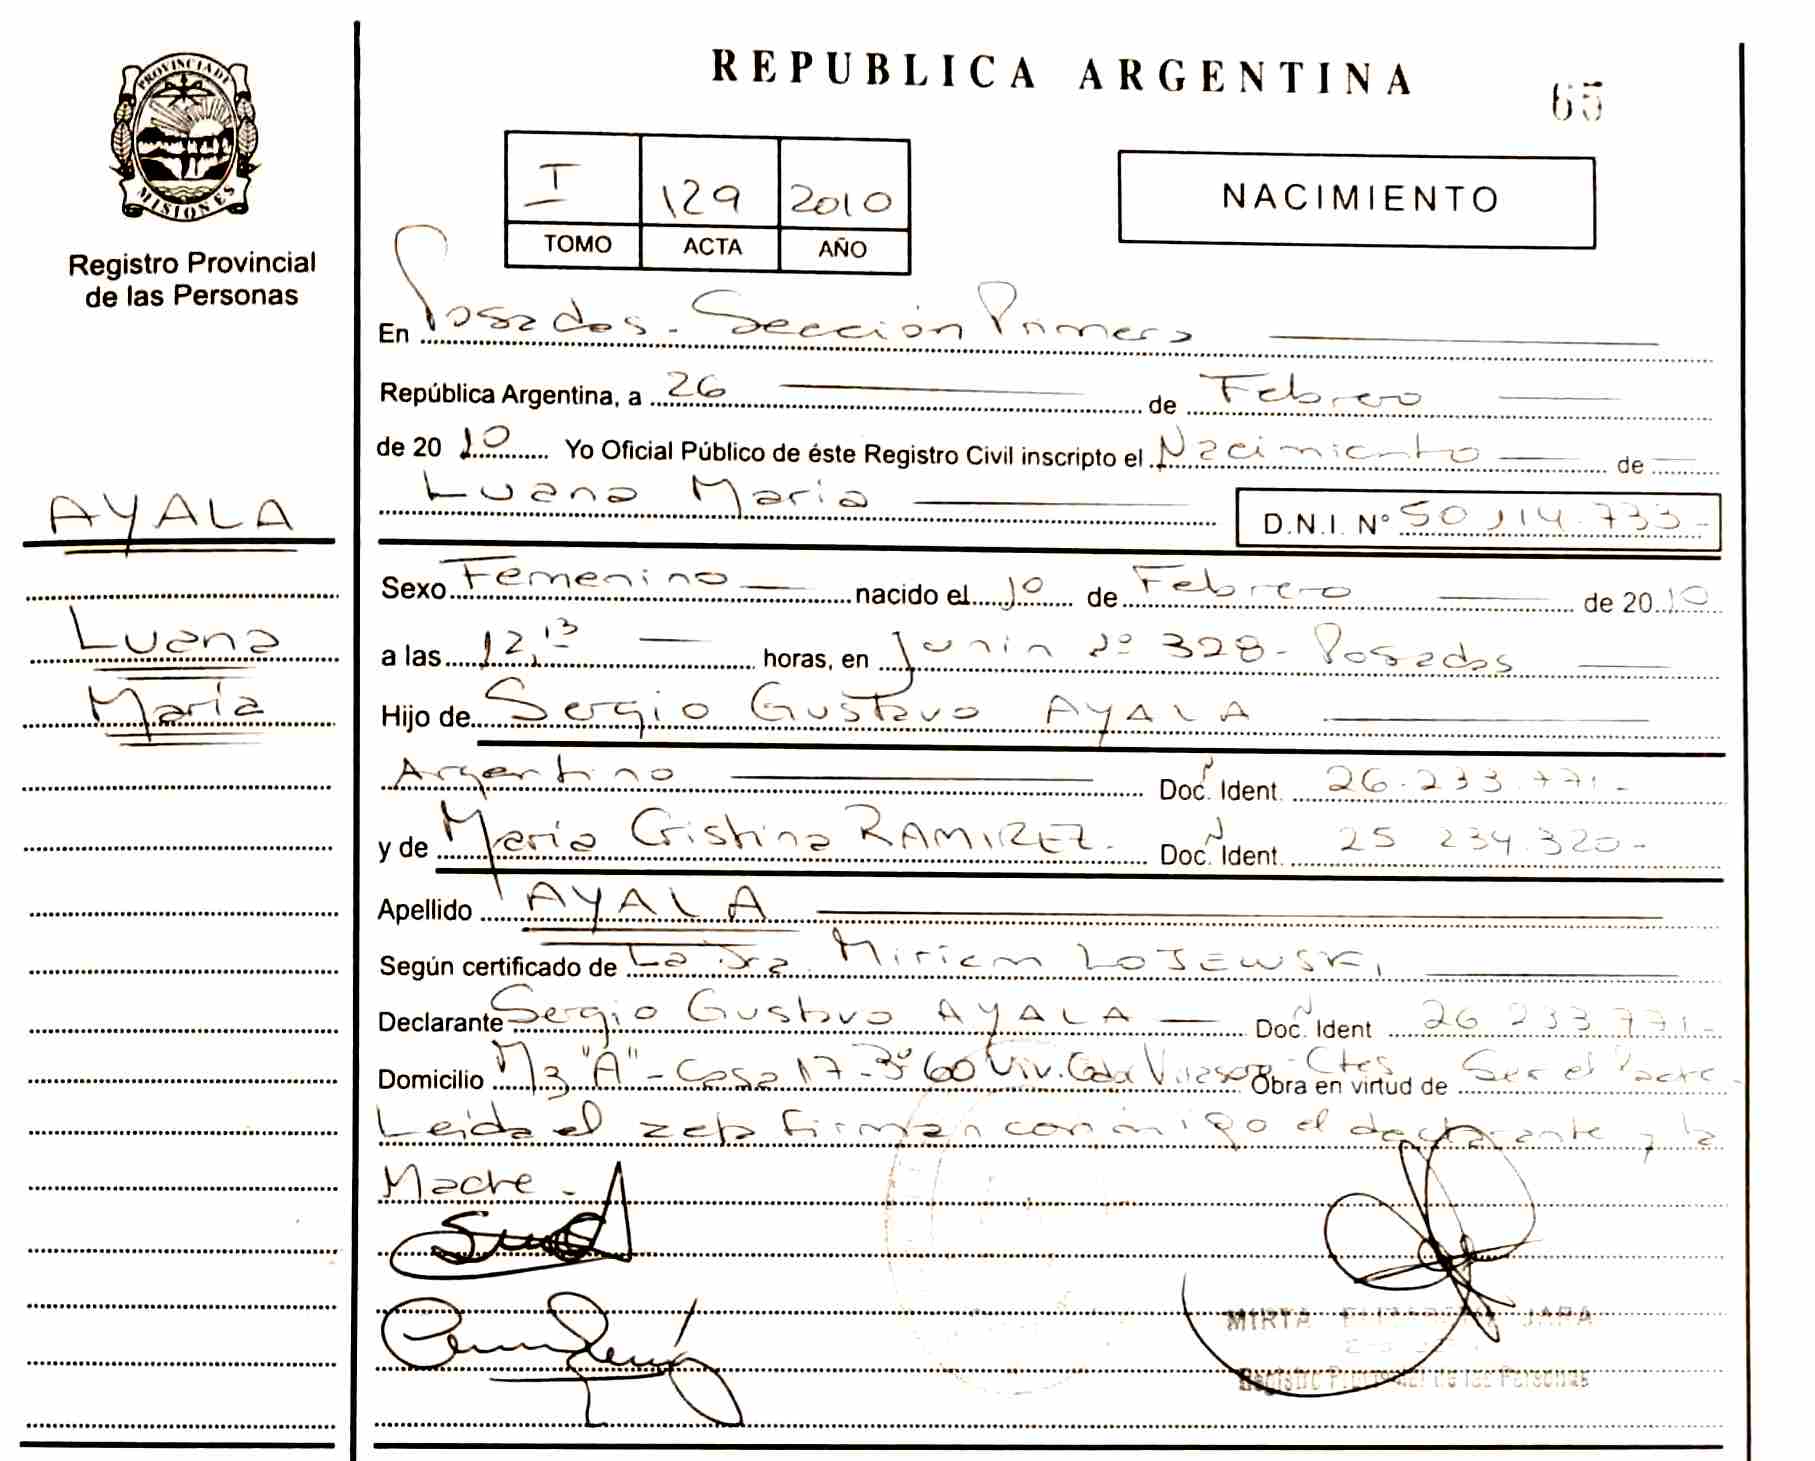 REPUBLICA ARGENTINA
65
PROVINCIA DE
MISIONES
Registro Provincial
de las Personas
I 129 2010
TOMO ACTA AÑO
NACIMIENTO
En Posadas - Sección Primera
República Argentina, a 26 de Febrero
de 20 10 Yo Oficial Público de éste Registro Civil inscripto el Nacimiento de
Luana María
D.N.I. N° 50.114.733-
AYALA
Luana
María
Sexo Femenino nacido el 10 de Febrero de 20 10
a las 12,13 horas, en Junin nº 328 - Posadas
Hijo de Sergio Gustavo AYALA
Argentino Doc. Ident. 26.233.771.-
y de María Cristina RAMIREZ. Doc. Ident. 25 234.320-
Apellido AYALA
Según certificado de La Dra. Miriam LOJEWSKI
Declarante Sergio Gustavo AYALA Doc. Ident 26 233.771.-
Domicilio Mz "A" - Casa 17 - 60 Viv. Gdor Virasoro - Ctes Obra en virtud de Ser el Padre.
Leída el acta firman conmigo el declarante y la
Madre.
MIRTA ELIZABETH JARA
Registro Provincial de las Personas